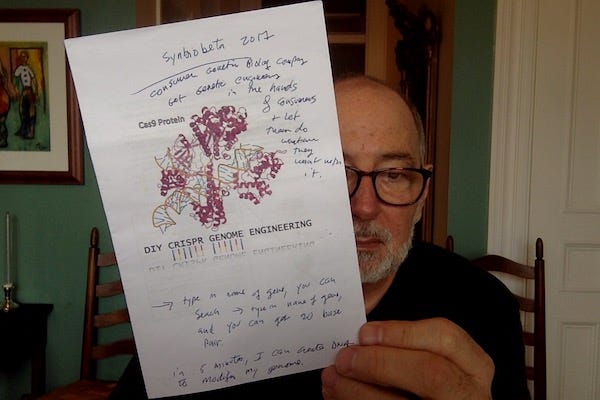 Synbiobeta 2017
consumer genetic Biology Company
get genetic engineering
in the hands
of consumers
+ let
them do
whatever
they
want with
it.
Cas9 Protein
DIY CRISPR GENOME ENGINEERING
→ type in name of gene, you can
Search → type in name of gene,
and you can get 20 base
Pair.
in 5 minutes, I can create DNA
to modify my genome.